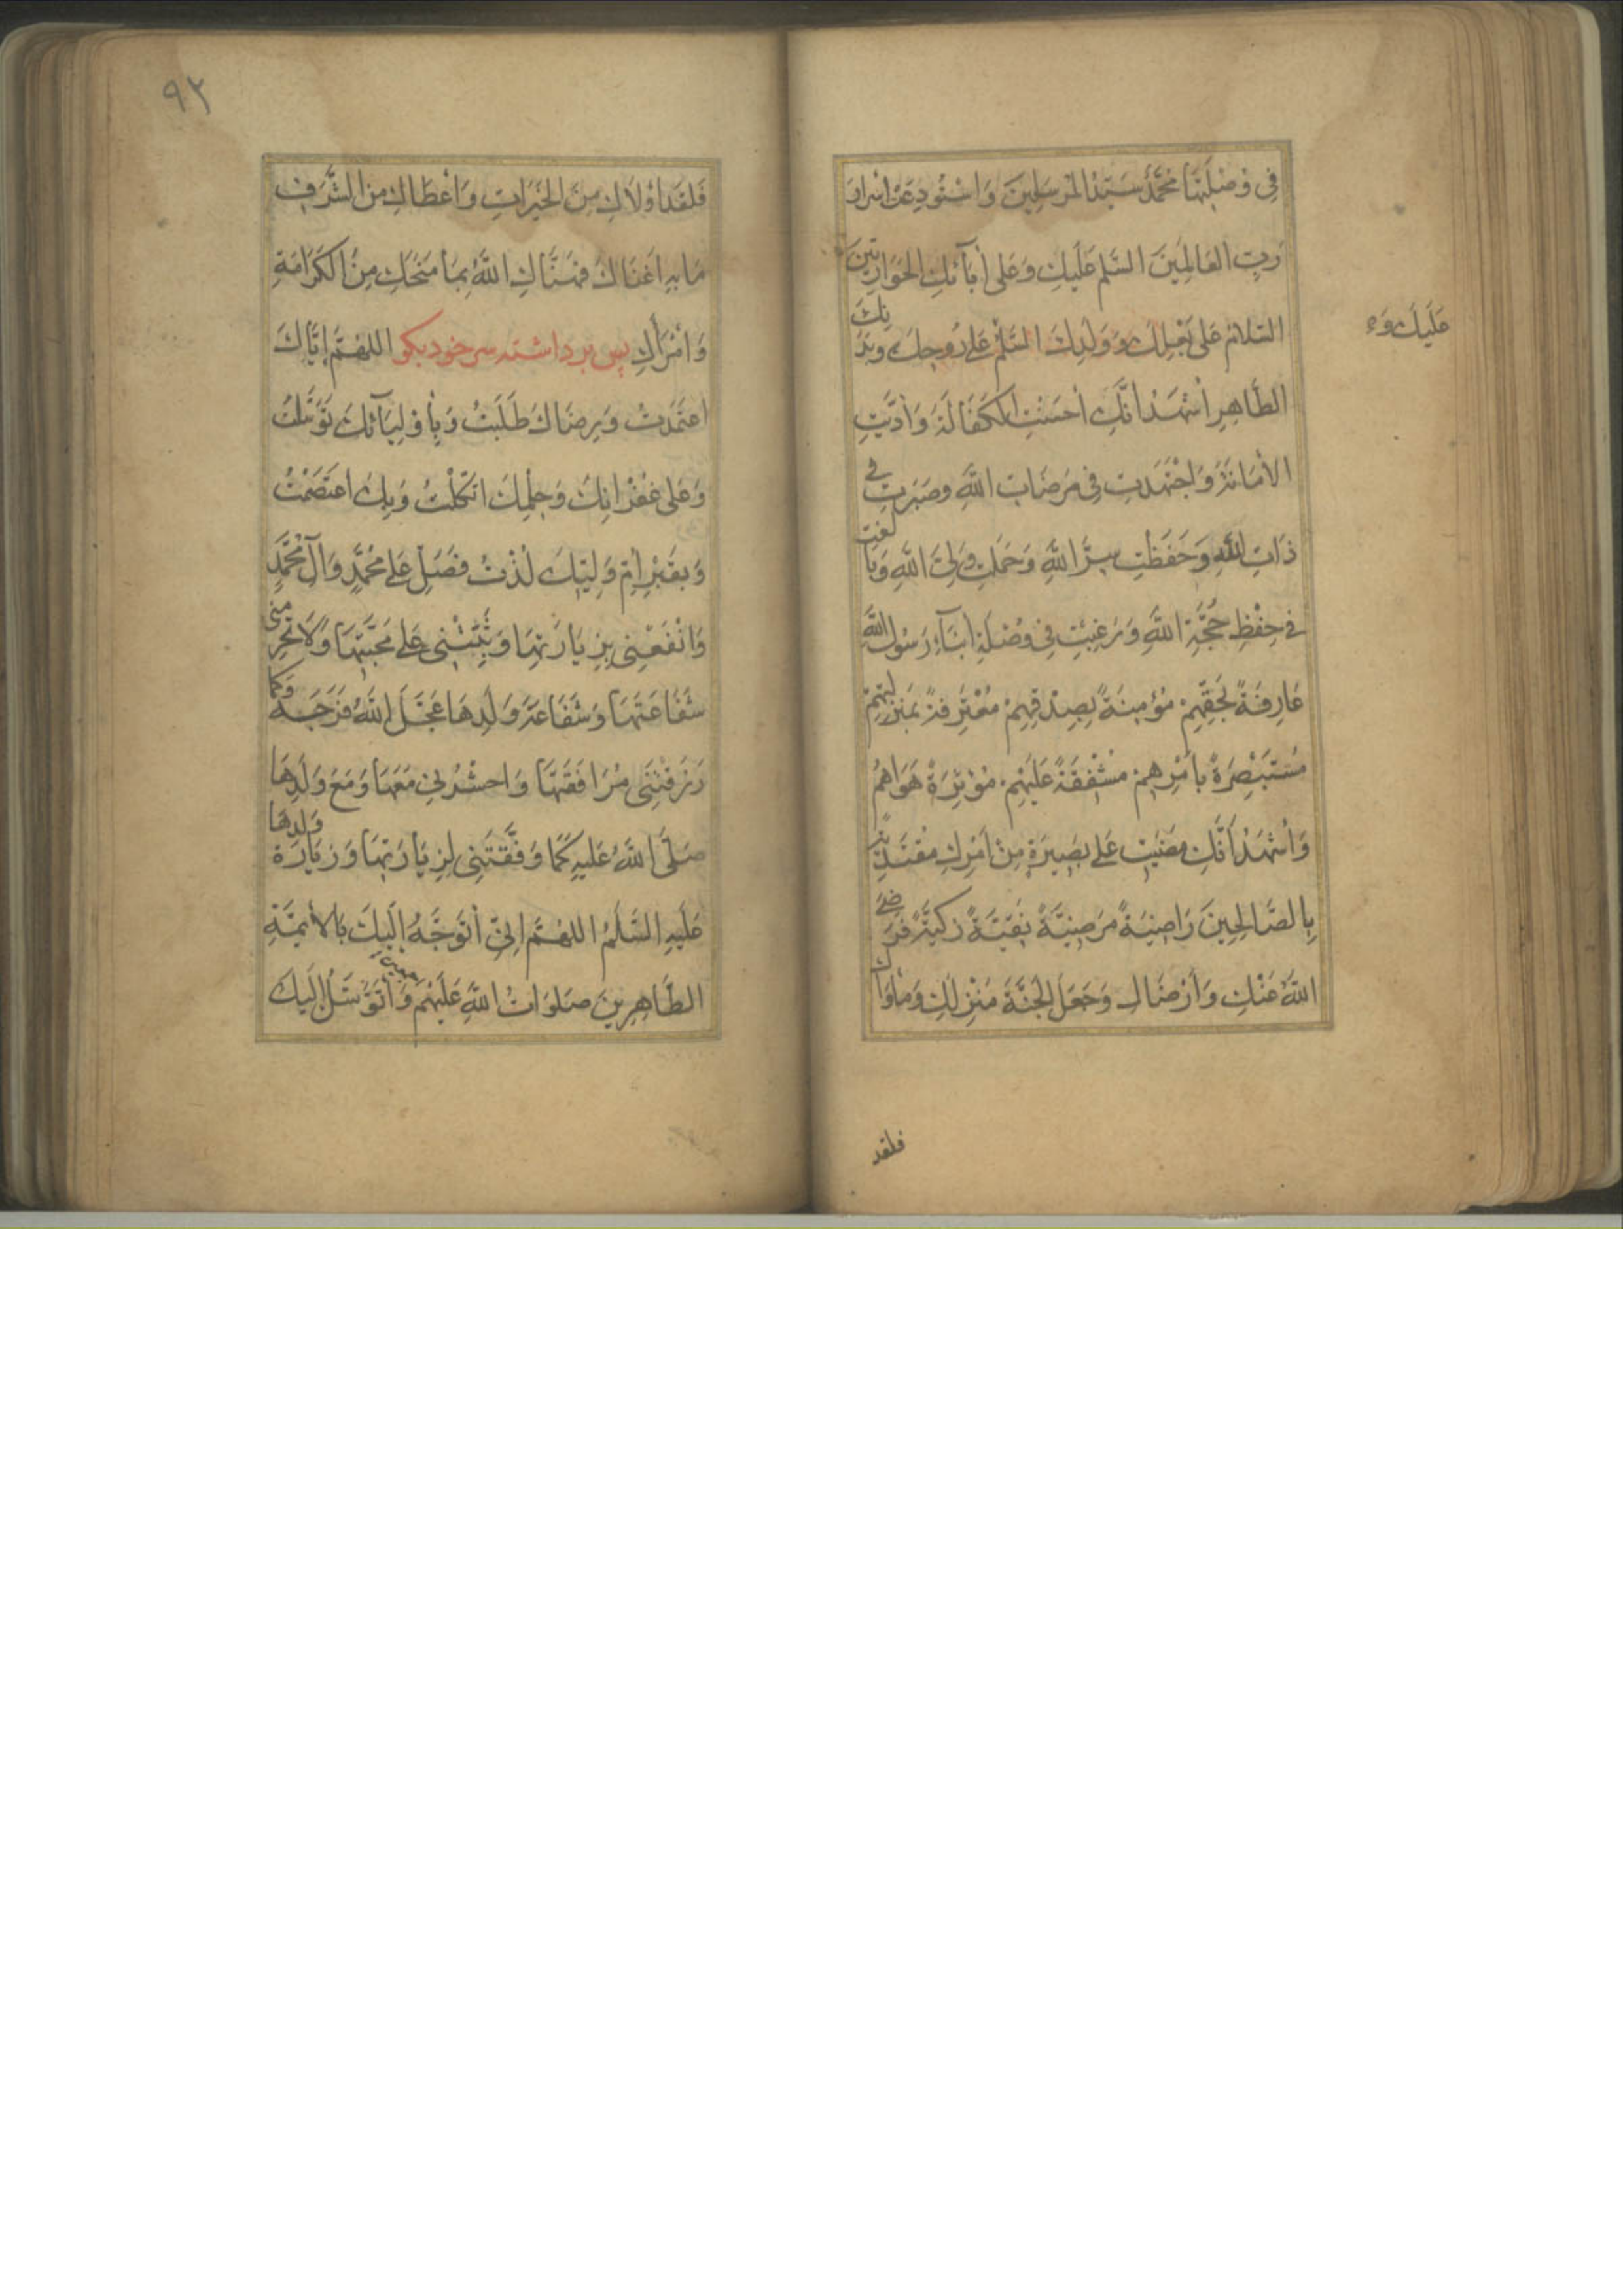 فِی وُصْلَتِهَا مُحَمَّدٌ سَیِّدُ الْمُرْسَلِینَ وَاسْتُودِعَتْ اَسْرَارَ
رَبِّ الْعَالَمِینَ السَّلٰمُ عَلَیْكِ وَعَلَی اٰبَآئِكِ الْحَوَارِیِّینَ
السَّلَامُ عَلَی بَعْلِكِ وَوَلَدِكِ السَّلٰمُ عَلَی رُوحِكِ وَبَدَنِكِ
علیك و
الطَّاهِرِ اَشْهَدُ اَنَّكِ اَحْسَنْتِ الْكَفَالَةَ وَاَدَّیْتِ
الْاَمَانَةَ وَاجْتَهَدْتِ فِی مَرْضَاتِ اللّٰهِ وَصَبَرْتِ فِی
ذَاتِ اللّٰهِ وَحَفِظْتِ سِرَّ اللّٰهِ وَحَمَلْتِ وَلِیَّ اللّٰهِ وَبَالَغْتِ
فِی حِفْظِ حُجَّةِ اللّٰهِ وَرَغِبْتِ فِی وُصْلَةِ اَبْنَآءِ رَسُولِ اللّٰهِ
عَارِفَةً بِحَقِّهِمْ مُؤْمِنَةً بِصِدْقِهِمْ مُعْتَرِفَةً بِمَنْزِلَتِهِمْ
مُسْتَبْصِرَةً بِاَمْرِهِمْ مُشْفِقَةً عَلَیْهِمْ مُؤْثِرَةً هَوَاهُمْ
وَاَشْهَدُ اَنَّكِ مَضَیْتِ عَلَی بَصِیرَةٍ مِنْ اَمْرِكِ مُقْتَدِیَةً
بِالصَّالِحِینَ رَاضِیَةً مَرْضِیَّةً نَقِیَّةً زَكِیَّةً فَرَضِیَ
اللّٰهُ عَنْكِ وَاَرْضَاكِ وَجَعَلَ الْجَنَّةَ مَنْزِلَكِ وَمَاْوَاكِ
فلقد
٩٢
فَلَقَدْ اَوْلَاكِ مِنَ الْخَیْرَاتِ وَاَعْطَاكِ مِنَ الشَّرَفِ
مَا بِهِ اَغْنَاكِ فَهَنَّاكِ اللّٰهُ بِمَا مَنَحَكِ مِنَ الْكَرَامَةِ
وَاَمْرَاَكِ پس برداشته سر خود بكو اللّٰهُمَّ اِیَّاكَ
اعْتَمَدْتُ وَبِرِضَاكَ طَلَبْتُ وَبِاَوْلِیَآئِكَ تَوَسَّلْتُ
وَعَلَی غُفْرَانِكَ وَحِلْمِكَ اتَّكَلْتُ وَبِكَ اعْتَصَمْتُ
وَبِقَبْرِ اُمِّ وَلِیِّكَ لُذْتُ فَصَلِّ عَلَی مُحَمَّدٍ وَاٰلِ مُحَمَّدٍ
وَانْفَعْنِی بِزِیَارَتِهَا وَثَبِّتْنِی عَلَی مَحَبَّتِهَا وَلَا تَحْرِمْنِی
شَفَاعَتَهَا وَشَفَاعَةَ وَلَدِهَا عَجَّلَ اللّٰهُ فَرَجَهُ وَكَمَا
رَزَقْتَنِی مُرَافَقَتَهَا وَاحْشُرْنِی مَعَهَا وَمَعَ وَلَدِهَا
صَلَّی اللّٰهُ عَلَیْهِ كَمَا وَفَّقْتَنِی لِزِیَارَتِهَا وَزِیَارَةِ وَلَدِهَا
عَلَیْهِ السَّلٰمُ اللّٰهُمَّ اِنِّی اَتَوَجَّهُ اِلَیْكَ بِالْاَئِمَّةِ
الطَّاهِرِینَ صَلَوَاتُ اللّٰهِ عَلَیْهِمْ وَاَتَوَسَّلُ اِلَیْكَ